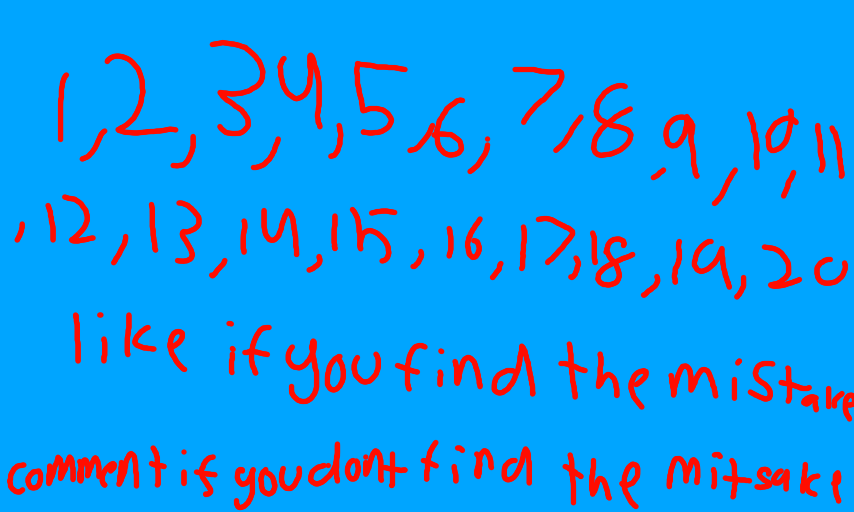 1,2,3,4,5,6,7,8,9,10,11
,12,13,14,15,16,17,18,19,20
like if you find the mistake
comment if you dont find the mitsake